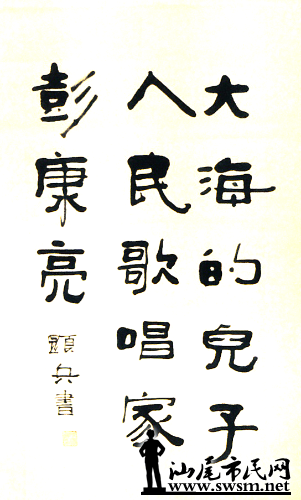 大海的兒子
人民歌唱家
彭康亮
兵書
汕尾市民网
www.swsm.net